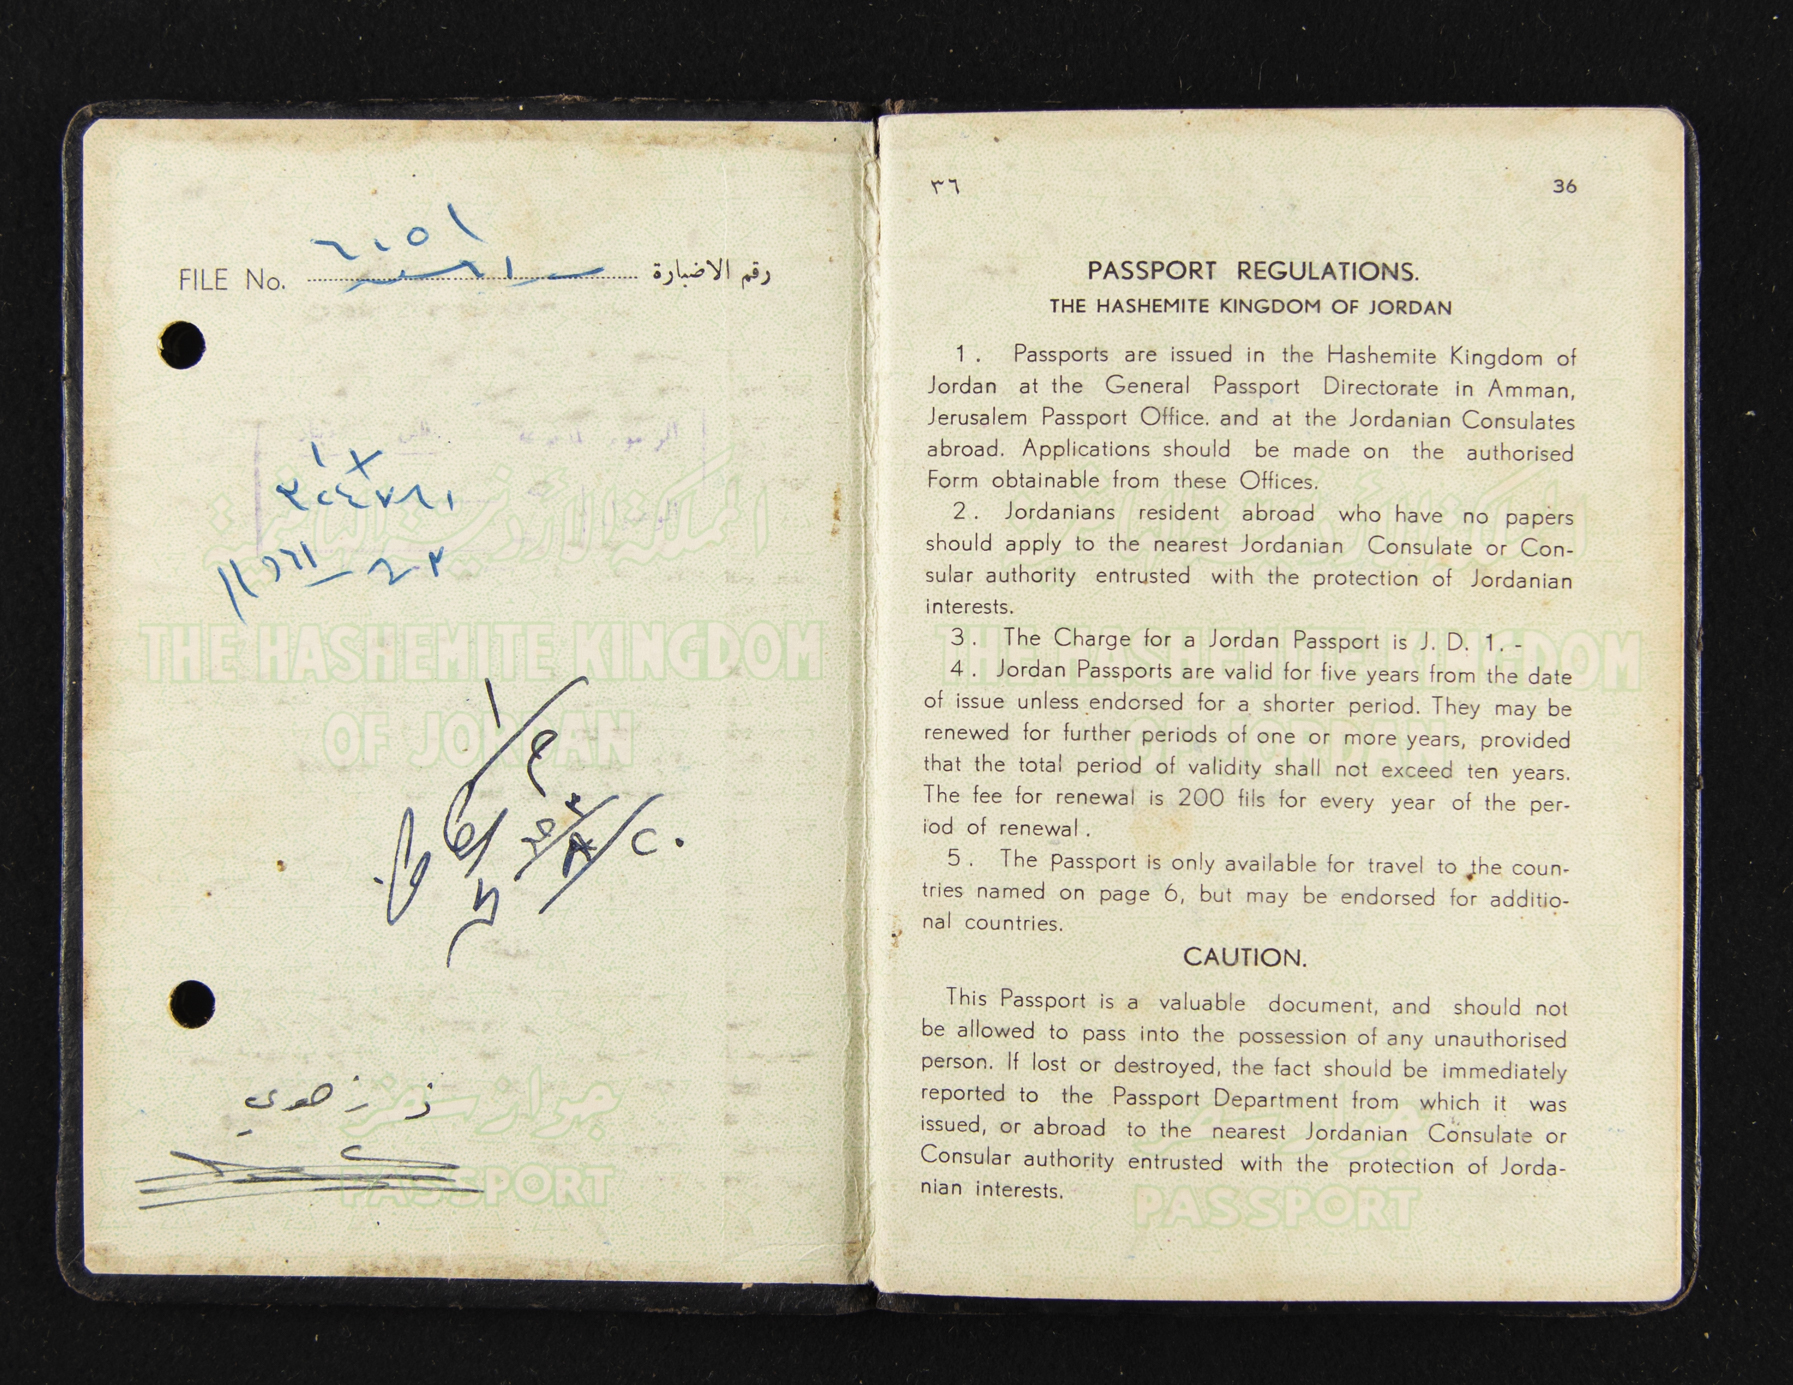 FILE No. رقم الاضبارة
٦٠٥١
المملكة الأردنية الهاشمية
THE HASHEMITE KINGDOM
OF JORDAN
جواز سفر
PASSPORT
٣٦ 36
PASSPORT REGULATIONS.
THE HASHEMITE KINGDOM OF JORDAN
1. Passports are issued in the Hashemite Kingdom of
Jordan at the General Passport Directorate in Amman,
Jerusalem Passport Office. and at the Jordanian Consulates
abroad. Applications should be made on the authorised
Form obtainable from these Offices.
2. Jordanians resident abroad who have no papers
should apply to the nearest Jordanian Consulate or Con-
sular authority entrusted with the protection of Jordanian
interests.
3. The Charge for a Jordan Passport is J. D. 1. -
4. Jordan Passports are valid for five years from the date
of issue unless endorsed for a shorter period. They may be
renewed for further periods of one or more years, provided
that the total period of validity shall not exceed ten years.
The fee for renewal is 200 fils for every year of the per-
iod of renewal.
5. The Passport is only available for travel to the coun-
tries named on page 6, but may be endorsed for additio-
nal countries.
CAUTION.
This Passport is a valuable document, and should not
be allowed to pass into the possession of any unauthorised
person. If lost or destroyed, the fact should be immediately
reported to the Passport Department from which it was
issued, or abroad to the nearest Jordanian Consulate or
Consular authority entrusted with the protection of Jorda-
nian interests.
PASSPORT